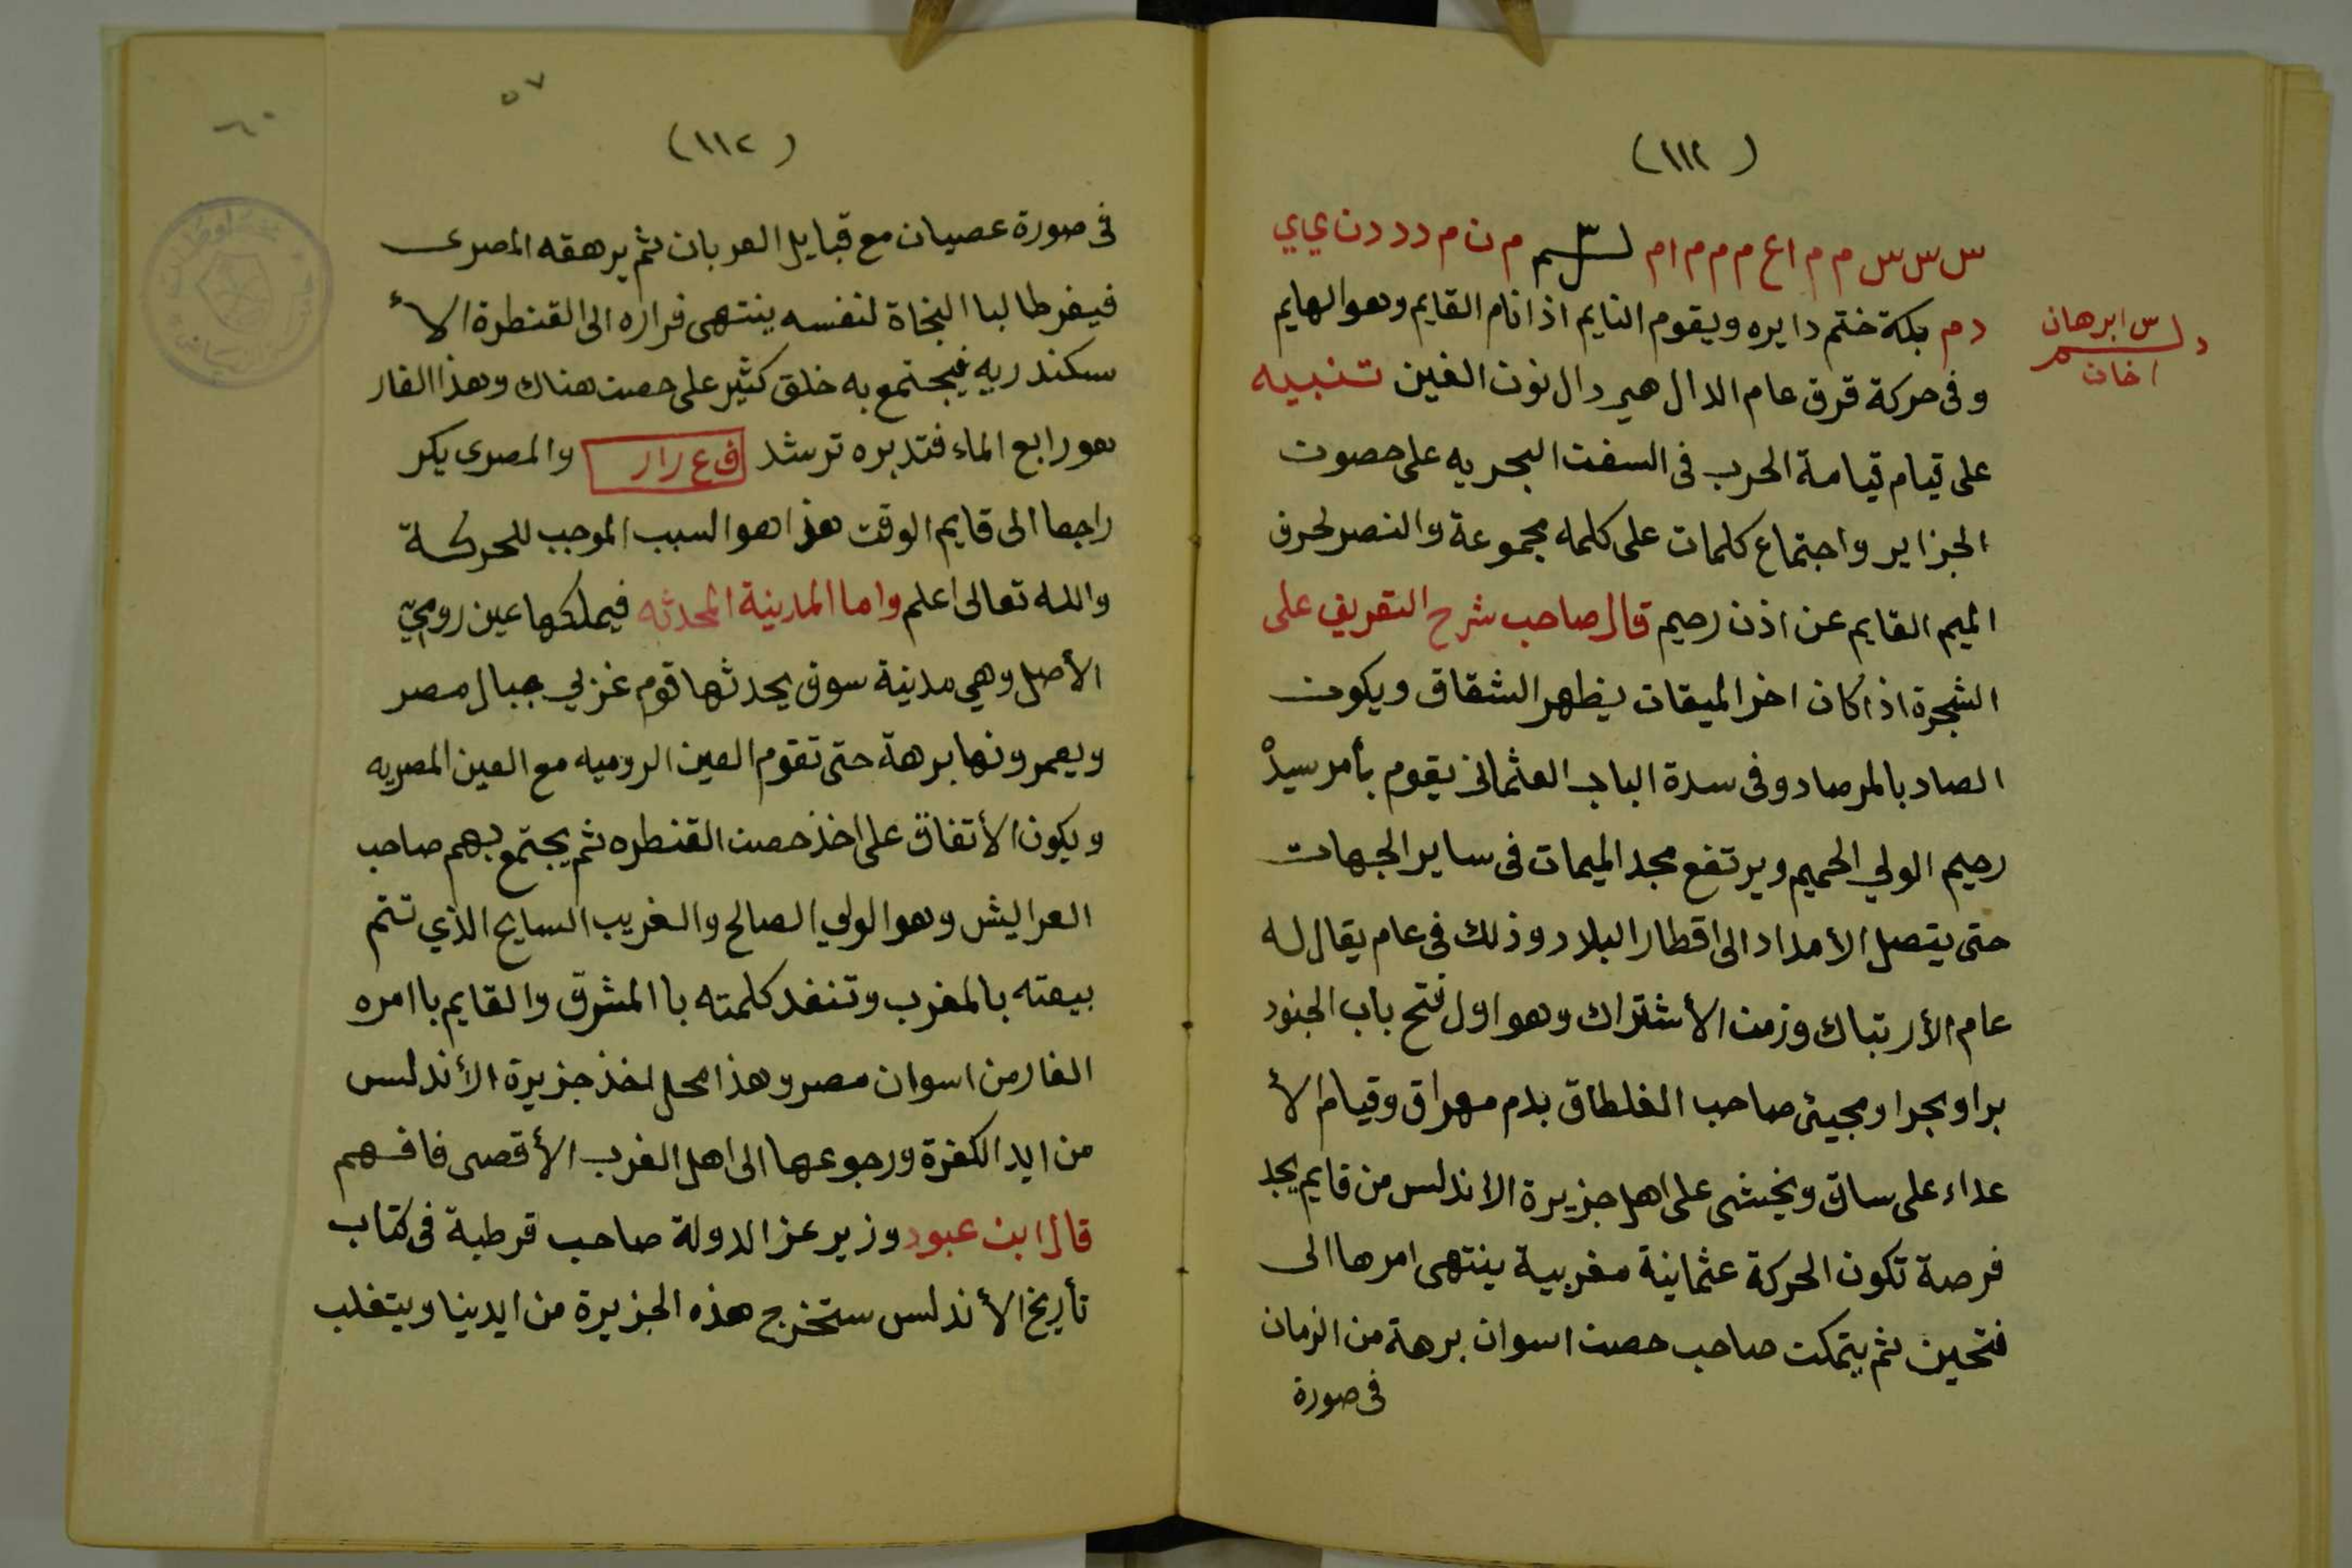 (١١٢)
س س س س م م ا ع م م م م ا م م ن م د د د ن ي ي
د م بكة ختم دايره ويقوم النايم اذا نام القايم وهو الهايم
س ابرهان
اخان
وفى حركة قرق عام الدال هى دال نون الغين تنبيه
على قيام قيامة الحرب فى السفن البحريه على حصون
الجزاير واجتماع كلمات على كلمه مجموعة والنصر لحرف
الميم القايم عن اذن رحيم قال صاحب شرح التعريف على
الشجرة اذا كان اخر الميقات يظهر الشقاق ويكون
الصاد بالمرصاد وفى سدة الباب العثمانى يقوم بأمر سيدْ
رحيم الولي الحميم ويرتفع مجد الميمات فى ساير الجهات
حتى يتصل الأمداد الى اقطار البلاد وذلك فى عام يقال له
عام الأرتباك وزمن الأشتراك وهو اول فتح باب الجنود
برا وبحرا ومجيئ صاحب الغلطاق بدم مهراق وقيام الأ
عداء على ساق ويخشى على اهل جزيرة الاندلس من قايم يجد
فرصة تكون الحركة عثمانية مغربية ينتهى امرها الى
فتحين ثم يتمكن صاحب حصن اسوان برهة من الزمان
فى صورة
٥٧
٦٠
(١١٢)
فى صورة عصيان مع قبايل العربان ثم يرهقه المصرى
فيفر طالبا النجاة لنفسه ينتهى فراره الى القنطرة الأ
سكندريه فيجتمع به خلق كثير على حصن هناك وهذا الفار
هو رابع الماء فتدبره ترشد ف ع رار والمصرى يكر
راجعا الى قايم الوقت هذا هو السبب الموجب للحركة
والله تعالى اعلم واما المدينة المحدثه فيملكها عين روميّ
الأصل وهي مدينة سوف يحدثها قوم غربي جبال مصر
ويعمرونها برهة حتى تقوم العين الروميه مع العين المصريه
ويكون الأتفاق على اخذ حصن القنطره ثم يجتمع بهم صاحب
العرايش وهو الولي الصالح والغريب السايح الذي تتم
بيعته بالمغرب وتنفد كلمته باالمشرق والقايم باامره
الفار من اسوان مصر وهذا محل اخذ جزيرة الأندلس
من ايد الكفرة ورجوعها الى اهل الغرب الأقصى فافهم
قال ابن عبود وزير عز الدولة صاحب قرطبة فى كتاب
تأريخ الأندلس ستخرج هذه الجزيرة من ايدينا ويتغلب